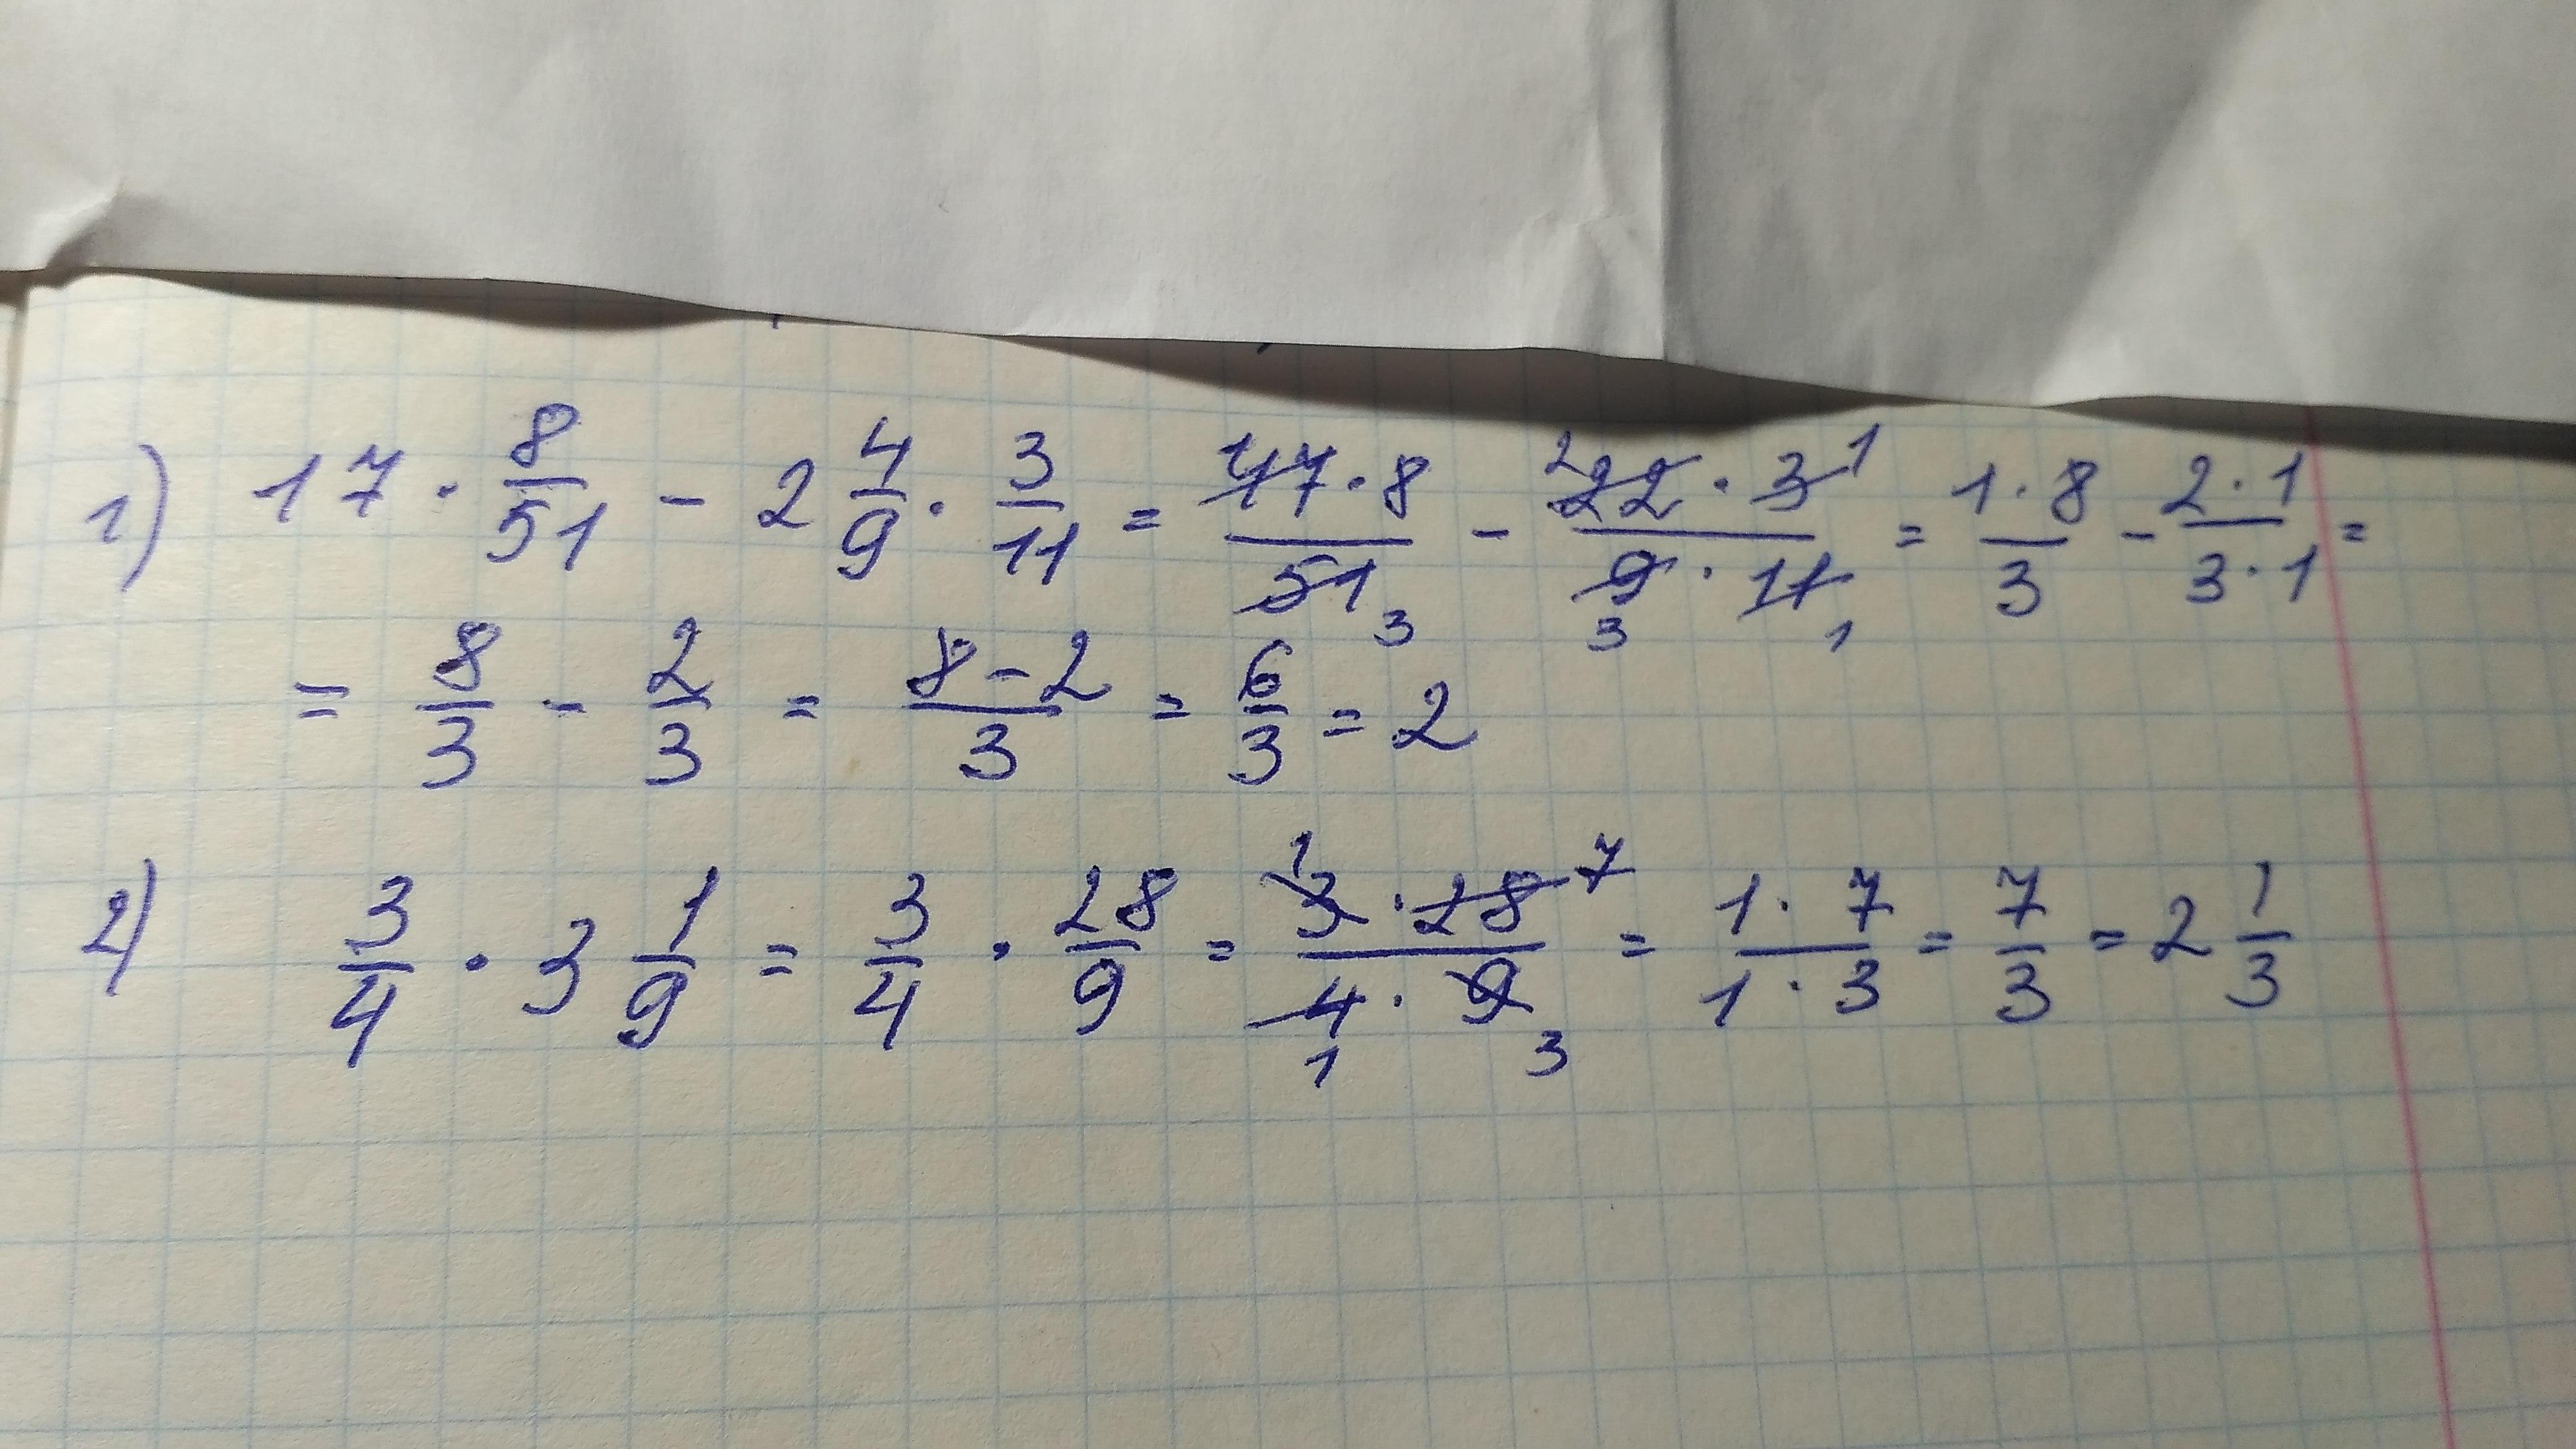 1) 17 · 8/51 - 2 4/9 · 3/11 = 17·8/51 3 - 2 22·3 1/9 3 · 11 1 = 1·8/3 - 2·1/3·1 =
= 8/3 - 2/3 = 8-2/3 = 6/3 = 2
2) 3/4 · 3 1/9 = 3/4 · 28/9 = 1 3·28 7/4 1 · 9 3 = 1·7/1·3 = 7/3 = 2 1/3